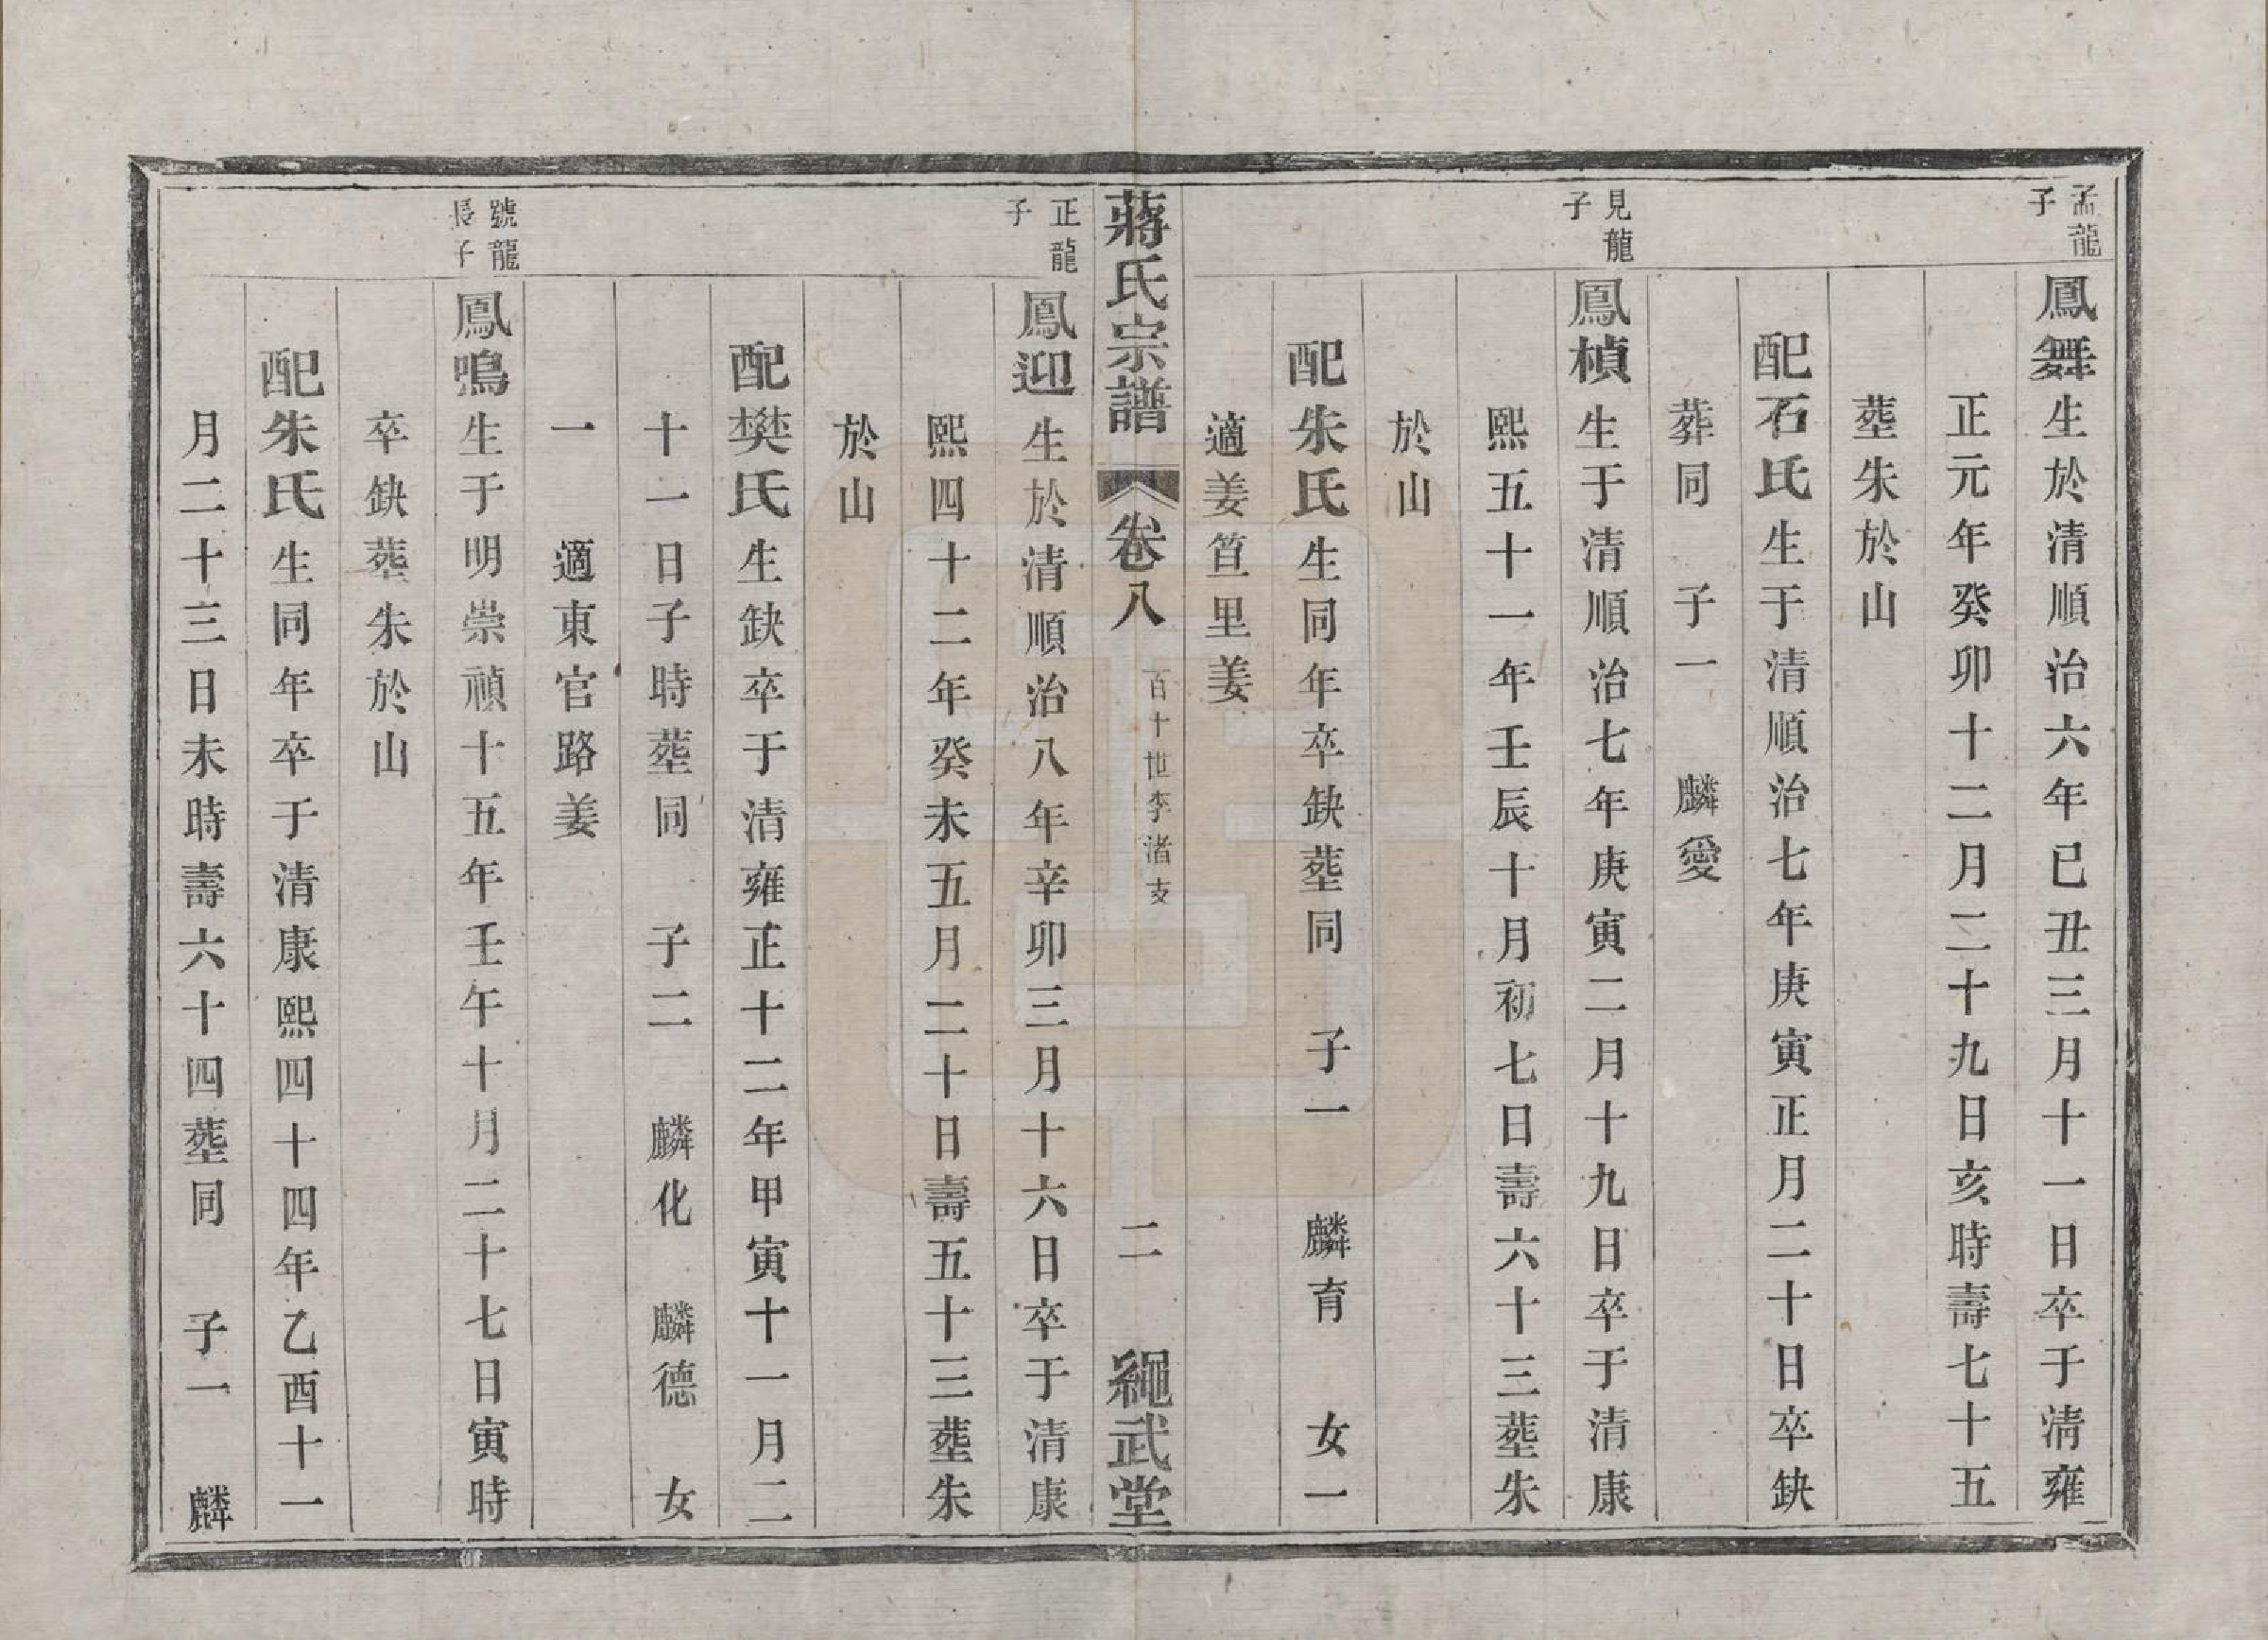 孟龍
子
鳳舞生於清順治六年己丑三月十一日卒于淸雍
正元年癸卯十二月二十九日亥時壽七十五
塟朱於山
配石氏生于清順治七年庚寅正月二十日卒缺
葬同 子一 麟愛
見龍
子
鳳楨生于清順治七年庚寅二月十九日卒于清康
熙五十一年壬辰十月初七日壽六十三塟朱
於山
配朱氏生同年卒缺塟同 子一 麟育 女一
適姜笪里姜
蔣氏宗譜 卷八 百十世李渚支 二 繩武堂
正龍
子
鳳迎生於清順治八年辛卯三月十六日卒于清康
熙四十二年癸未五月二十日壽五十三塟朱
於山
配樊氏生缺卒于清雍正十二年甲寅十一月二
十一日子時塟同 子二 麟化 麟德 女
一 適東官路姜
號龍
長子
鳳鳴生于明崇禎十五年壬午十月二十七日寅時
卒缺塟朱於山
配朱氏生同年卒于清康熙四十四年乙酉十一
月二十三日未時壽六十四塟同 子一 麟